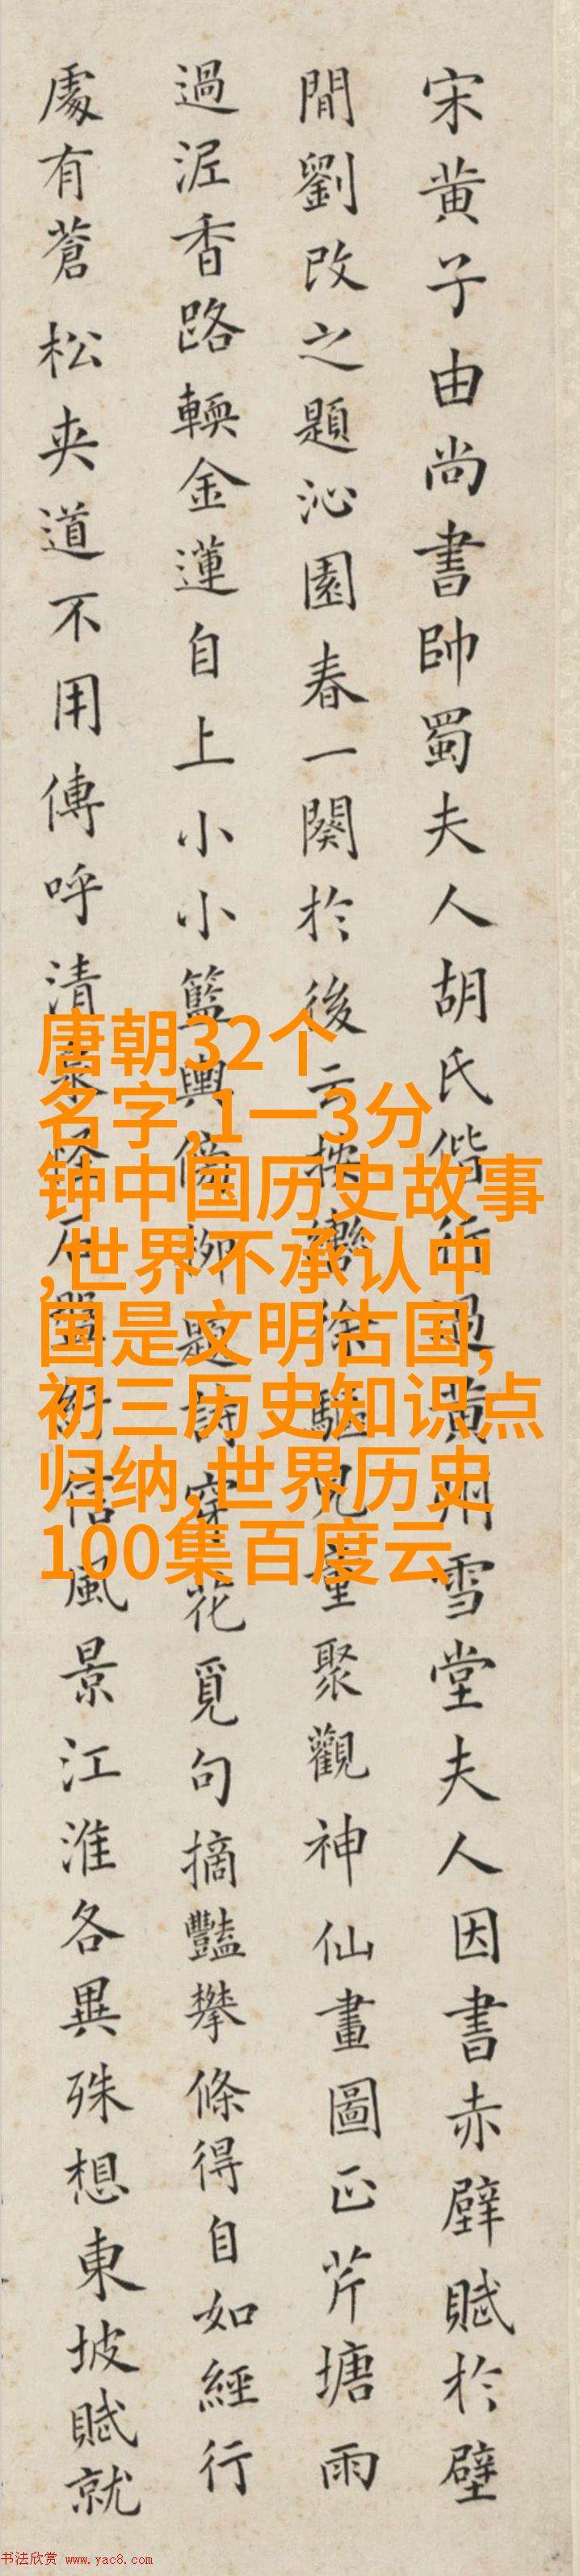 宋黄子由尚書帥蜀夫人胡氏偕行過黄州雪堂夫人因書赤壁賦於壁
間劉改之題沁園春一闋於後云按轡徐驅兒童聚觀神仙畫圖正芹塘雨
過泥香路輭金蓮自上小小籃輿傍柳題詩穿花覓句摘豔攀條得自如經行
處有蒼松夾道不用傳呼清泉怪石盤紆信風景江淮各異殊想東坡賦就
唐朝32个
名字,1一3分
钟中国历史故事
,世界不承认中
国是文明古国,
初三历史知识点
归纳,世界历史
100集百度云
书法欣赏 www.yac8.com